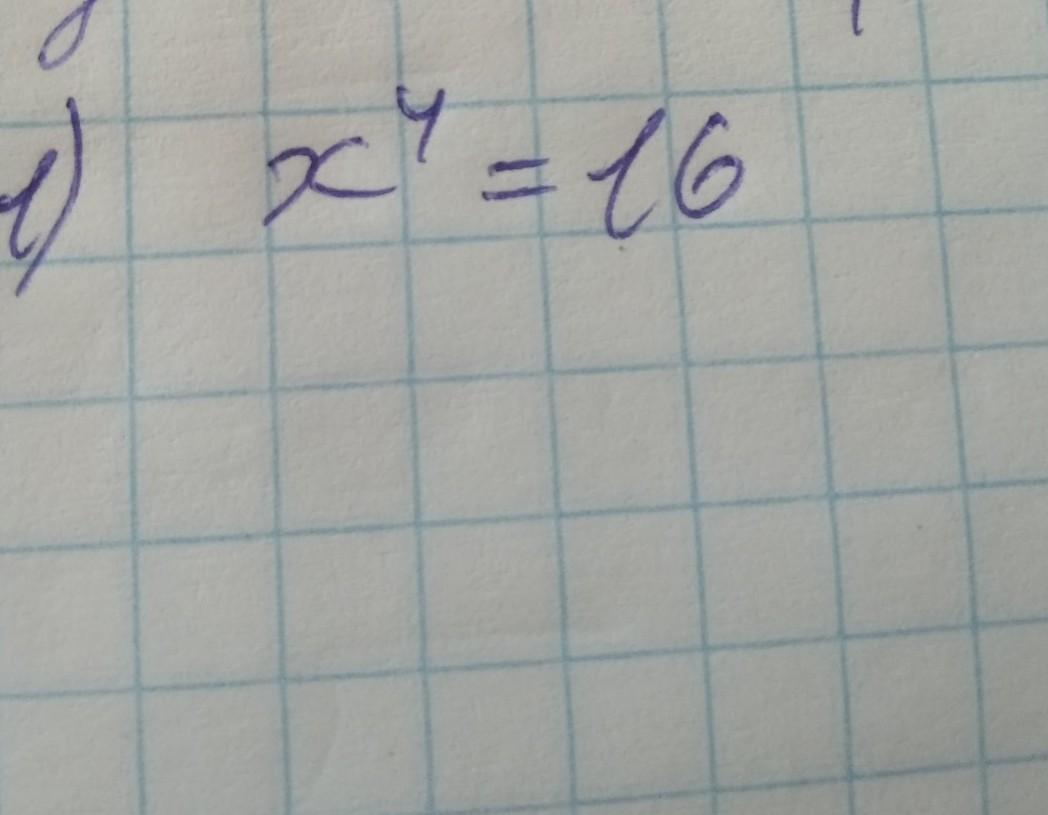 1) x⁴ = 16